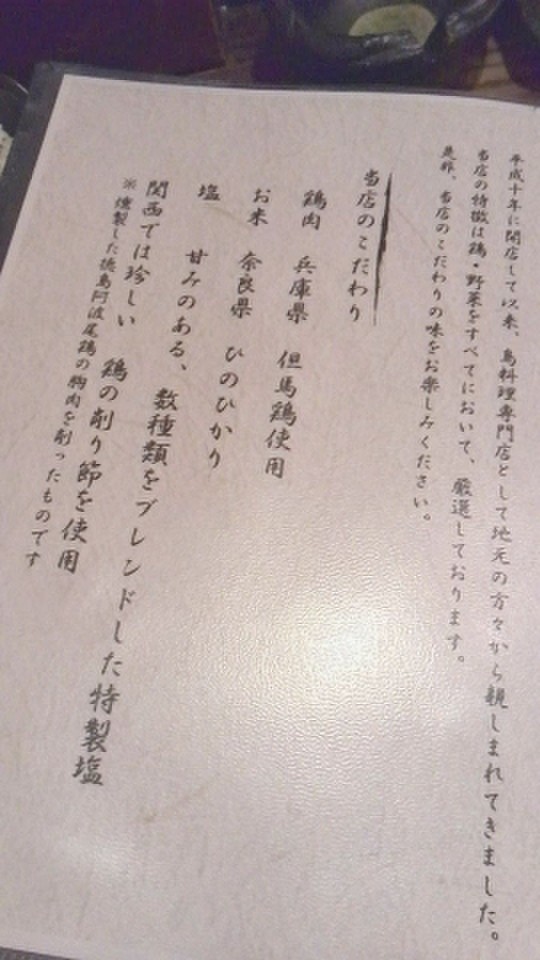 平成十年に開店して以来、鳥料理専門店として地元の方々から親しまれてきました。
当店の特徴は鶏・野菜をすべてにおいて、厳選しております。
是非、当店のこだわりの味をお楽しみください。
当店のこだわり
鶏肉 兵庫県 但馬鶏使用
お米 奈良県 ひのひかり
塩 甘みのある、数種類をブレンドした特製塩
関西では珍しい 鶏の削り節を使用
※燻製した徳島阿波尾鶏の胸肉を削ったものです